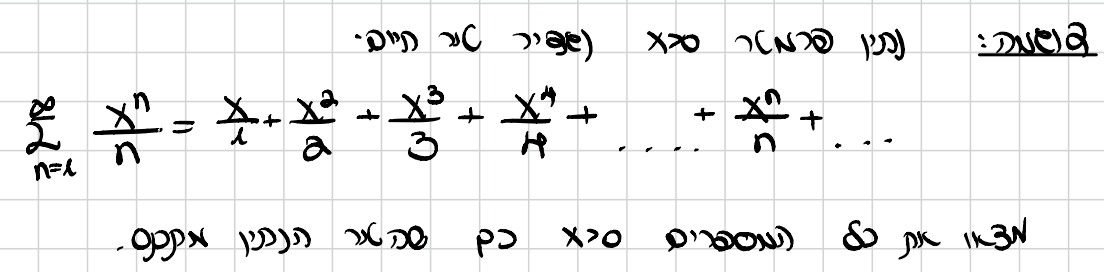 דוגמה: נתון פרמטר 0<x נגדיר טור חיובי.
∑_{n=1}^{∞} x^n/n = x/1 + x^2/2 + x^3/3 + x^4/4 + .... + x^n/n + ...
מצאו את כל המספרים 0<x כך שהטור הנתון מתכנס.